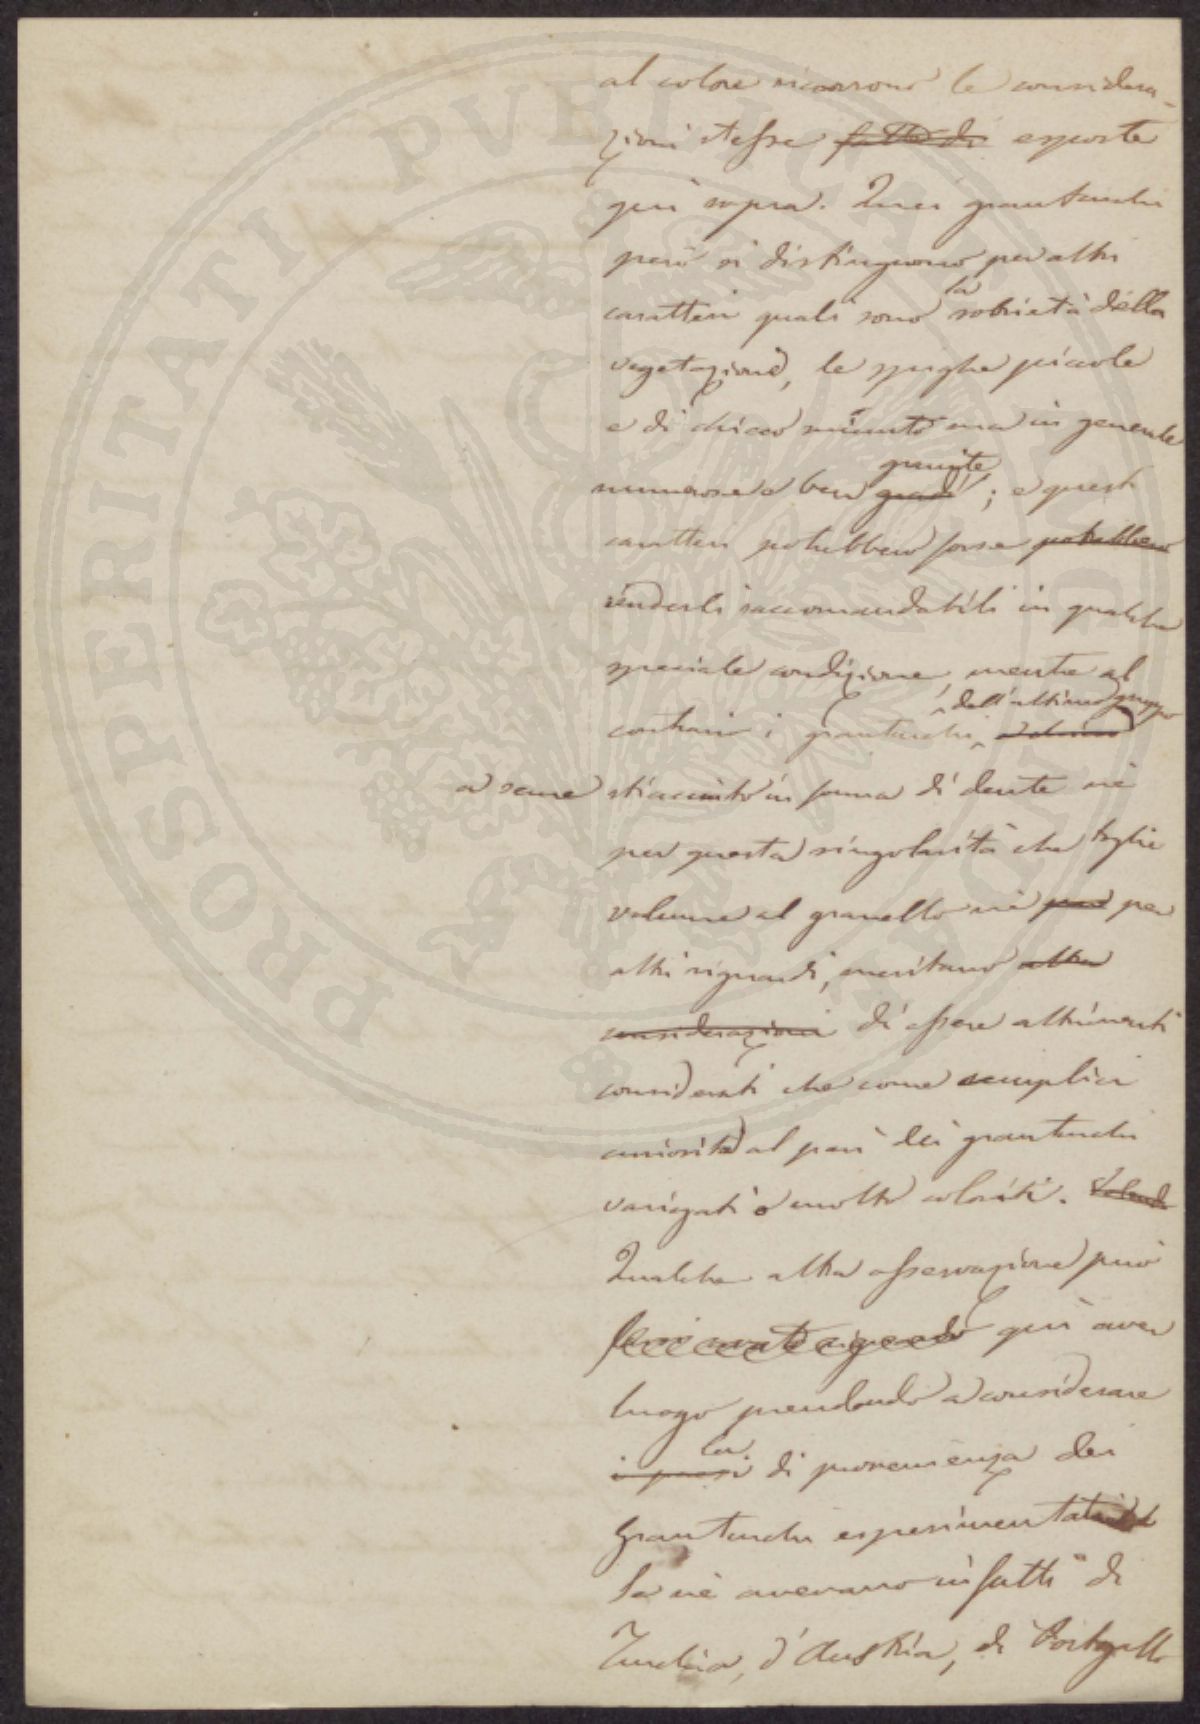 al colore ricorrono le considera-
zioni stesse fatte di esposte
qui sopra. Quei granturchi
però si distinguono per altri
caratteri quali sono la sobrietà della
vegetazione, le spighe piccole
e di chicco minuto ma in generale
numerose e ben granite gradi; e questi
caratteri potrebbero forse potrebbero
renderli raccomandabili in qualche
speciale condizione, mentre al
contrario i granturchi dell'ultimo gruppo
a seme stiacciato in forma di dente nè
per questa singolarità che toglie
volume al granello nè per
altri riguardi, meritano altra
considerazioni di essere altrimenti
considerati che come semplici
curiosità al pari dei granturchi
variegati o molto coloriti. Volendo
Qualche altra osservazione può
qui aver
luogo prendendo a considerare
la i paesi di provenienza dei
granturchi esperimentati
Se ne avevano infatti di
Turchia, d'Austria, di Portogallo
PROSPERITATI PUBLICAE AUGENDAE